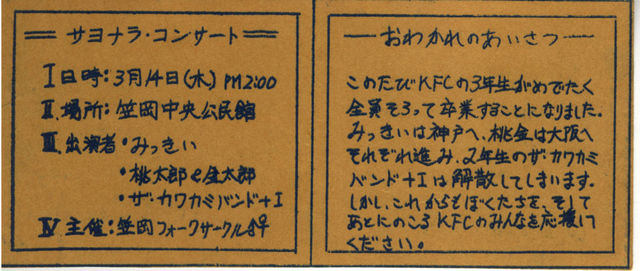 サヨナラ・コンサート
I 日時:3月14日(木) PM2:00
II. 場所:笠岡中央公民館
III. 出演者・みっきい
・桃太郎と金太郎
・ザ・カワカミバンド+I
IV 主催:笠岡フォークサークル
おわかれのあいさつ
このたびKFCの3年生がめでたく
全員そろって卒業することになりました。
みっきいは神戸へ、桃金は大阪へ
それぞれ進み、2年生のザ・カワカミ
バンド+Iは解散してしまいます。
しかし、これからもぼくたちを、そして
あとにのこるKFCのみんなを応援して
ください。